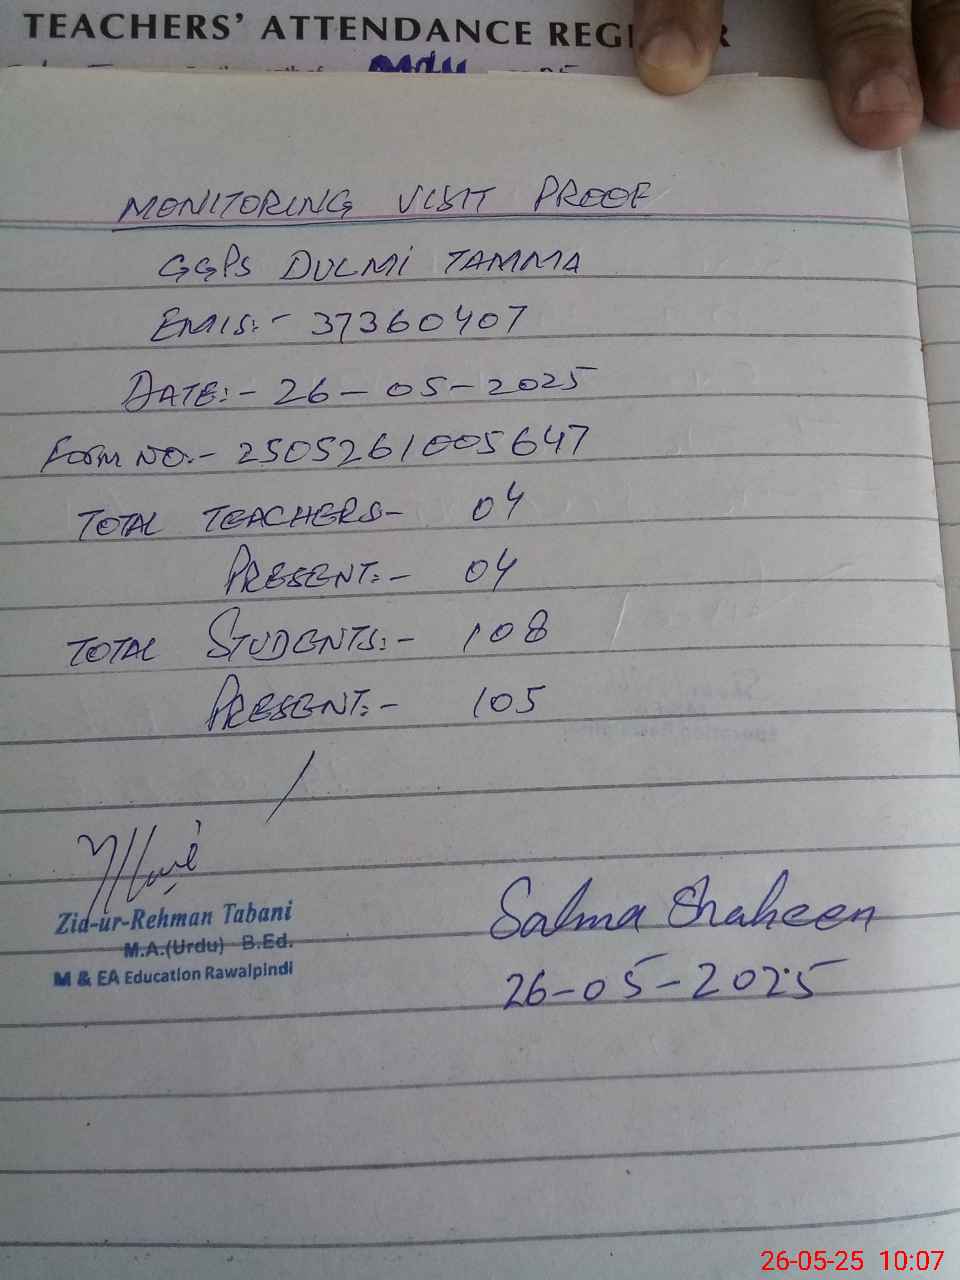 TEACHERS' ATTENDANCE REG R
MONITORING VISIT PROOF
GGPS DULMI TAMMA
EMIS:- 37360407
DATE:- 26-05-2025
FORM NO:- 2505261005647
TOTAL TEACHERS- 04
PRESENT:- 04
TOTAL STUDENTS:- 108
PRESENT:- 105
Zia-ur-Rehman Tabani
M.A.(Urdu) B.Ed.
M & EA Education Rawalpindi
Salma Shaheen
26-05-2025
26-05-25 10:07